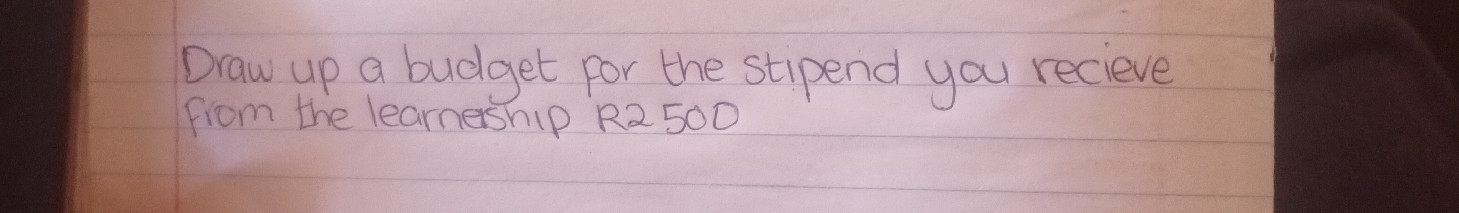 Draw up a budget for the stipend you recieve
from the learnership R2 500